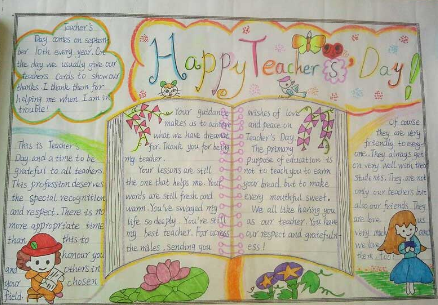 Happy Teacher's Day!
Teacher's
Day comes on septem
ber 10th every year. On
the day we usually give our
teachers cards to show our
thanks. I thank them for
helping me when I am in
trouble!
This is Teacher
Day and a time to be
grateful to all teachers.
This profession deserves
the special recognition
and respect. There is no
more appropriate time
than this to
honour you
and others in
your chosen
field.
Your guidance
makes us to
what we have
for. Thank you for being
my teacher.
Your lessons are still
the one that helps me. Your
words are still fresh and
warm. You've swayed my
life so deeply. You're still
my best teacher. For across
the miles, sending you
wishes of love
and peace on
Teacher's Day.
The primary
purpose of education is
not to teach you to earn
your bread, but to make
every mouthful sweet.
We all like having you
as our teacher. You have
our respect and grateful
ess!
Of course
they are very
friendly to every
one. They always get
on very well with their
students. They are not
only our teachers but
also our friends. They
are love us
very much and
we love
them, too!